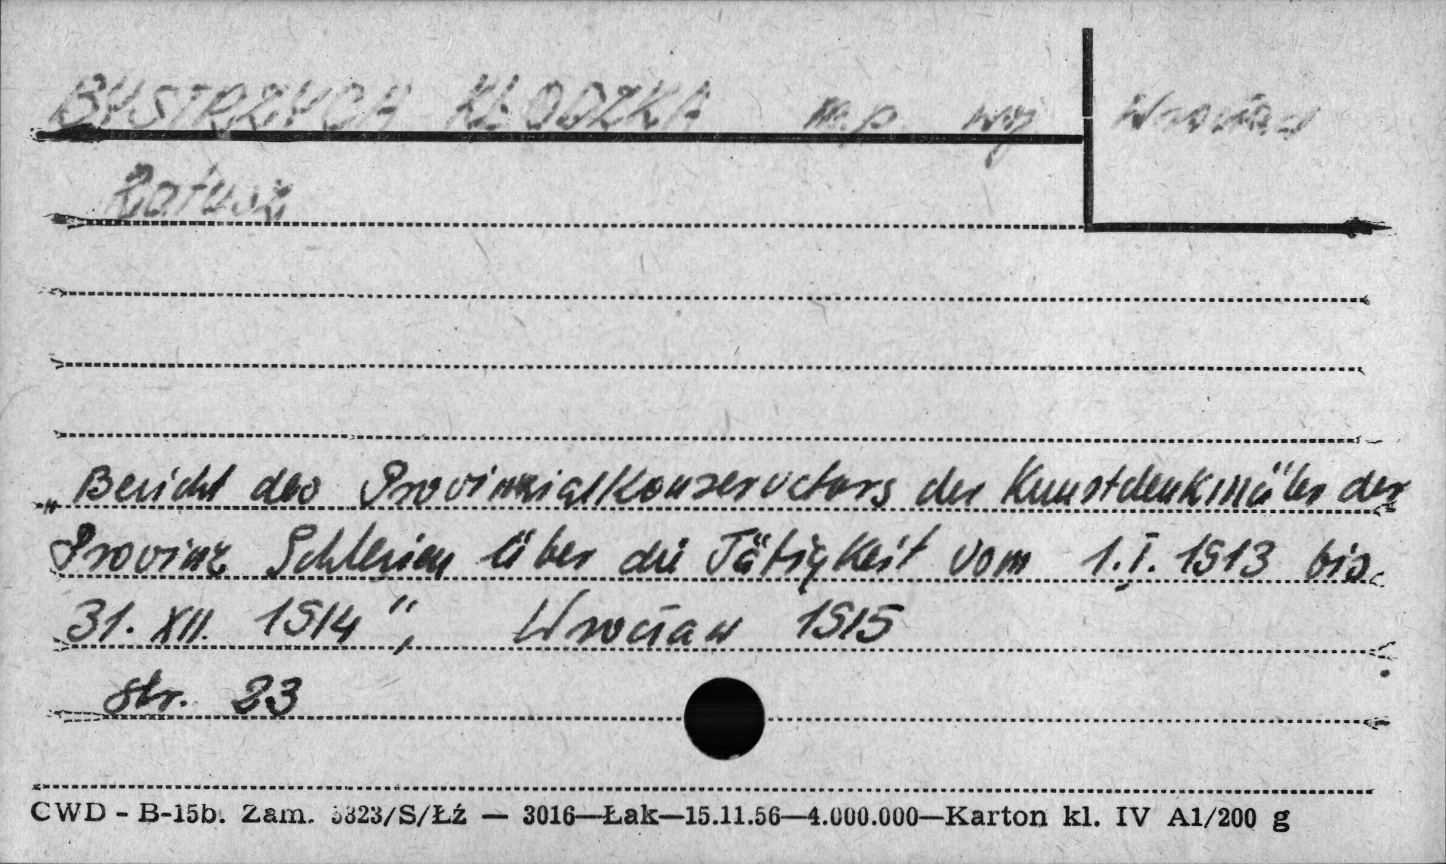 BYSTRZYCA KŁODZKA m.p. woj Wrocław
Ratusz
„Bericht des Provinzialkonservators der Kunstdenkmäler der
Provinz Schlesien über die Tätigkeit vom 1.I. 1913 bis
31. XII. 1914", Wrocław 1915
str. 23
CWD - B-15b. Zam. 5823/S/Łź — 3016—Łak—15.11.56—4.000.000—Karton kl. IV A1/200 g